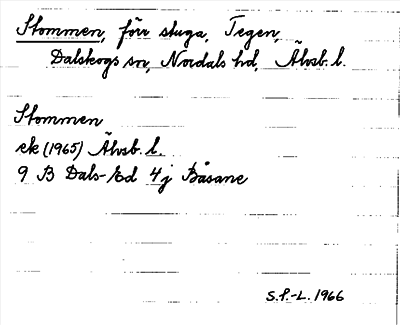 Stommen, förr stuga, Tegen,
Dalskogs sn, Nordals hd, Älvsb. l.
Stommen
ek (1965) Älvsb. l.
9 B Dals-Ed 4j Båsane
S.F.-L. 1966